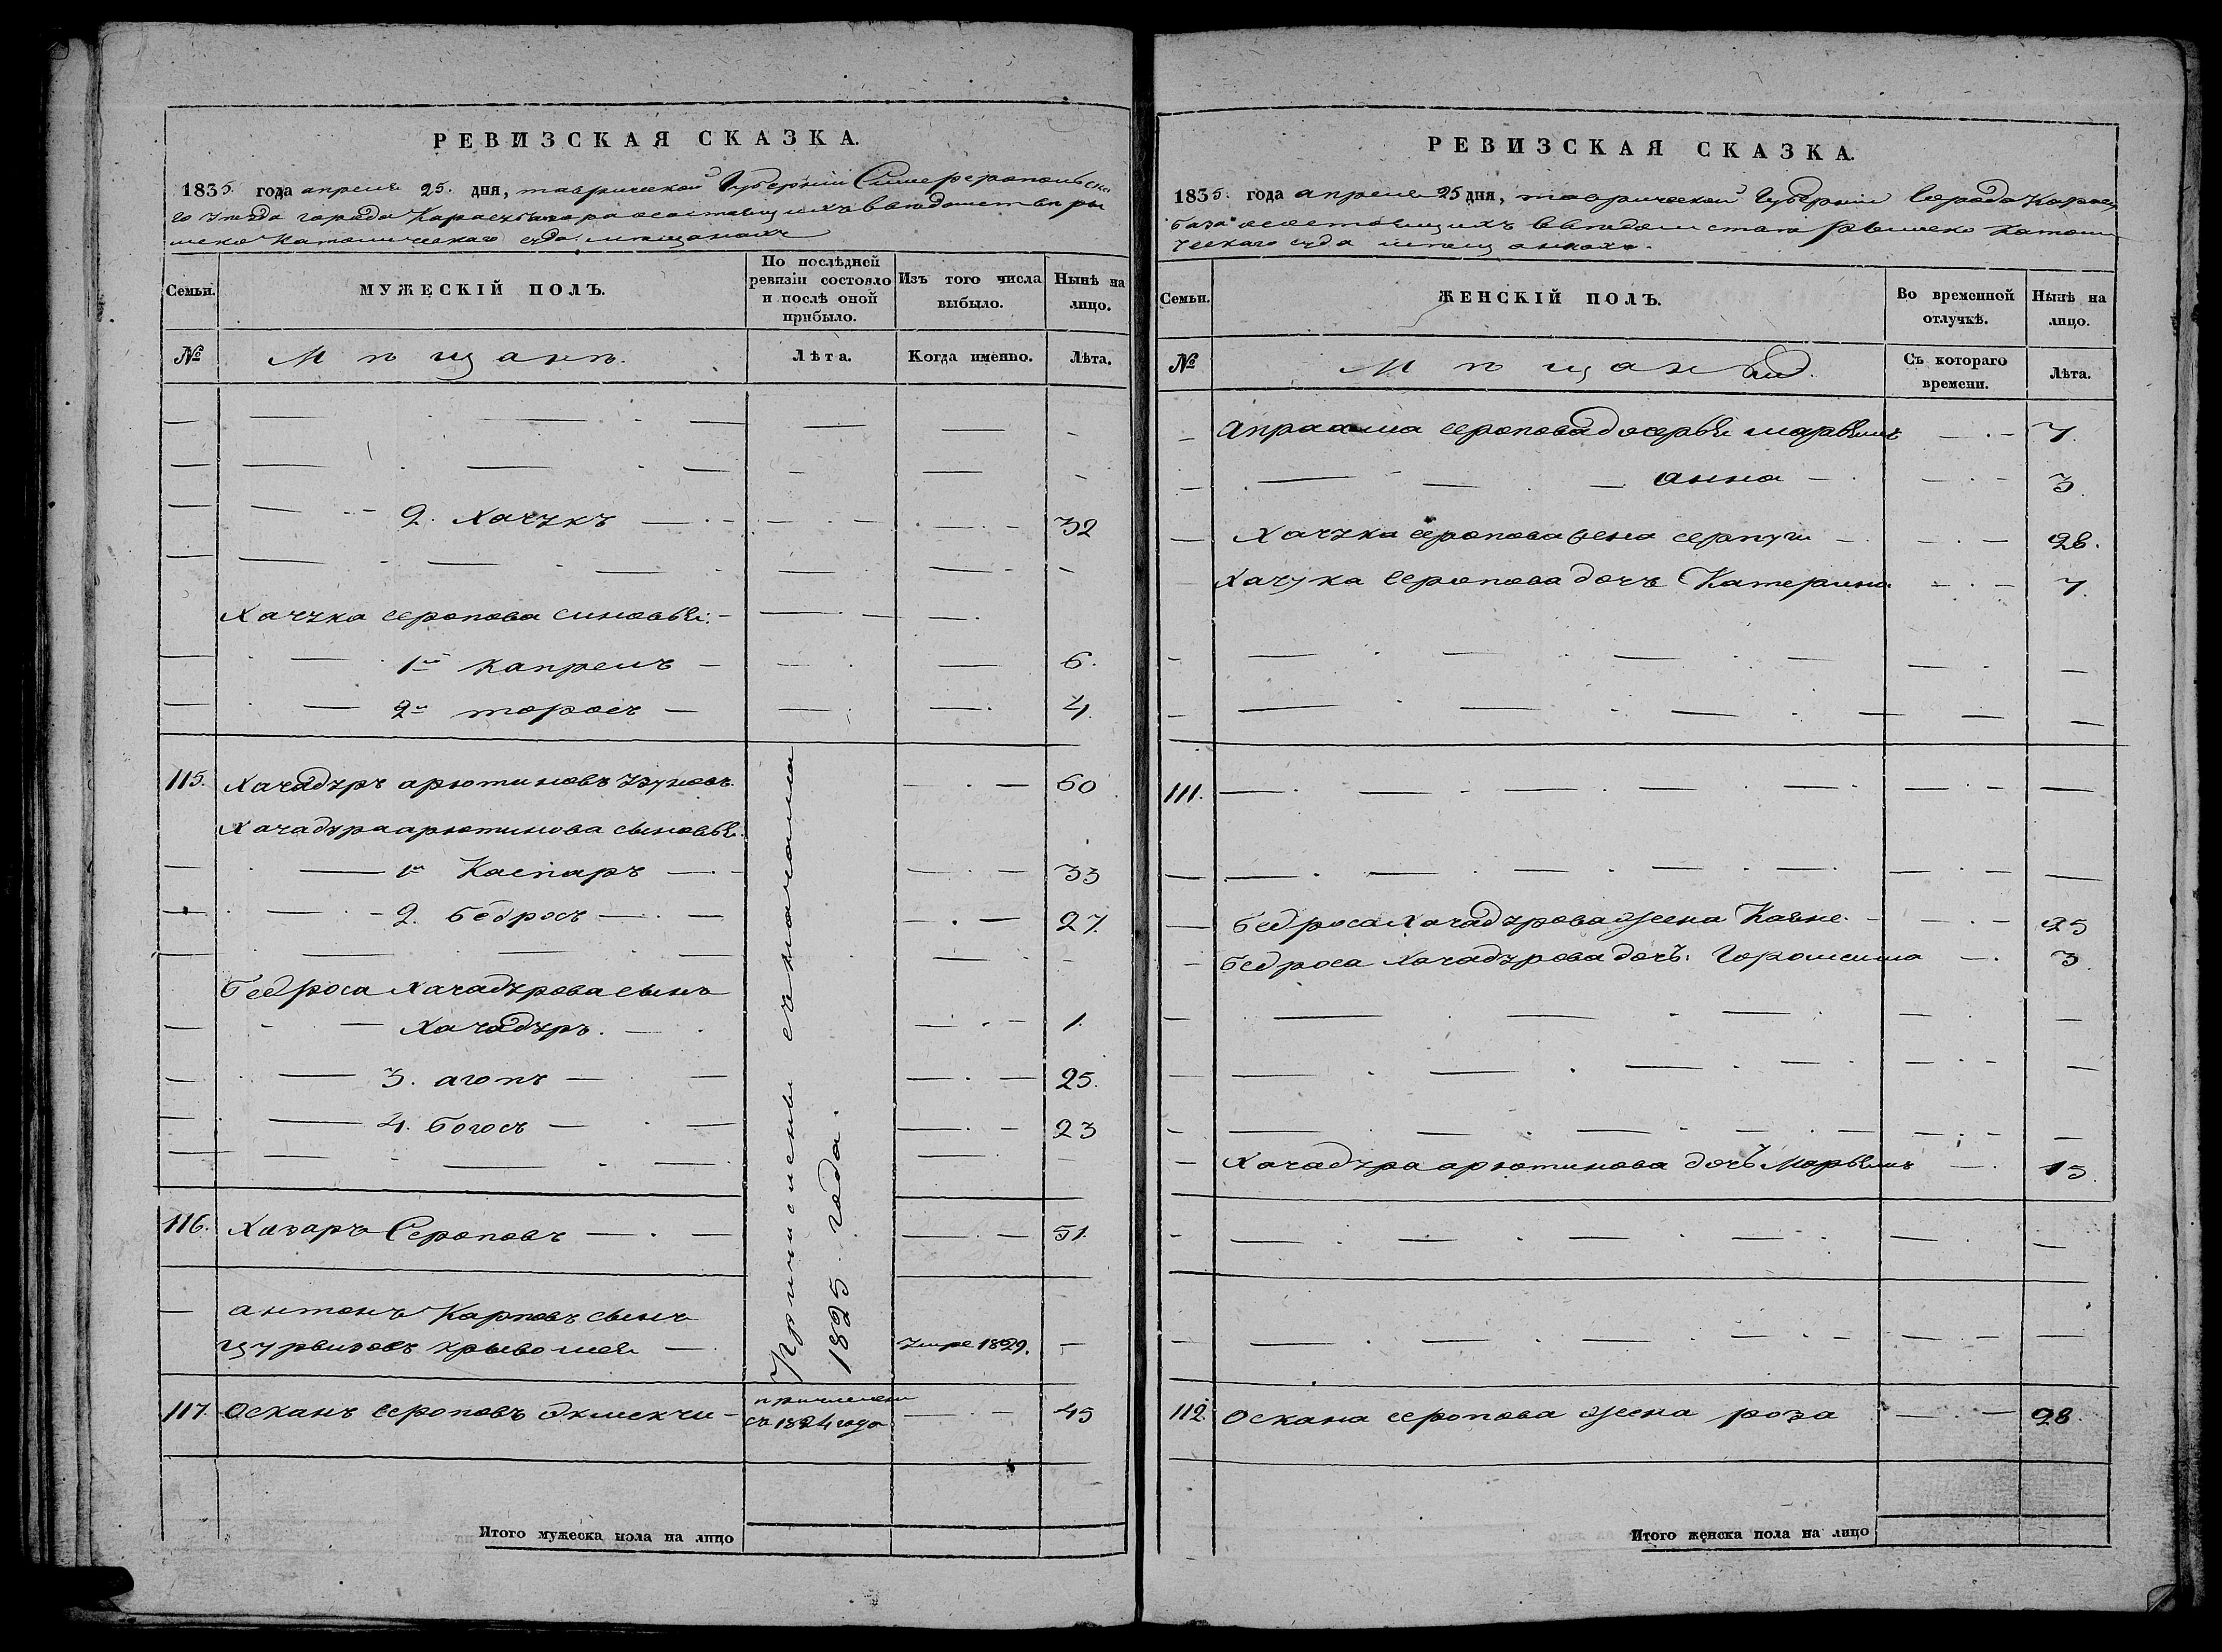 РЕВИЗСКАЯ СКАЗКА.
1835. года апреля 25. дня, таврической Губерніи Симферопольска
го уезда города Карасубазара состоящихъ в ведомстве ри
мско Католическаго суда мещанахъ
Семьи.
МУЖЕСКІЙ ПОЛЪ.
По послѣдней ревизіи состояло и послѣ оной прибыло.
Изъ того числа выбыло.
Нынѣ на лицо.
№
Мѣщанъ.
Лѣта.
Когда именно.
Лѣта.
2. Хачукъ 32
Хачука серопова синовья:
1й капрелъ 6.
2й торосъ 4.
115. Хачадуръ арютиновъ узуновъ. 60
Хачадура арютинова сыновья.
1й Каспаръ 33
2. бедросъ 27.
бедроса Хачадурова сынъ
Хачадуръ. 1.
3. агопъ 25.
4. богосъ 23
116. Хазаръ Сероповъ 51.
антонъ Карповъ сынъ
кривошея умре 1829.
Причислены съ
1825 года.
117. Осканъ сероповъ экмекчи причислен съ 1824 года 45
Итого мужеска пола на лицо
РЕВИЗСКАЯ СКАЗКА.
1835. года апреля 25 дня, таврической Губерніи Города Карасу
база состоящихъ в ведомстве римско Католи
ческаго суда мещанахъ.
Семьи.
ЖЕНСКІЙ ПОЛЪ.
Во временной отлучкѣ.
Нынѣ на лицо.
№
Мѣщанъ
Съ котораго времени.
Лѣта.
Апраама серопова дочерья марьямъ 7.
анна 3.
Хачука серопова жена серпуги 28.
Хачука Серопова дочь Катерина 7.
111.
бедроса Хачадурова жена Каяне. 25
бедроса Хачадурова дочь: Горомсима 3.
Хачадура арютинова дочь Марьямъ 15.
112. Оскана серопова жена роза 28.
Итого женска пола на лицо